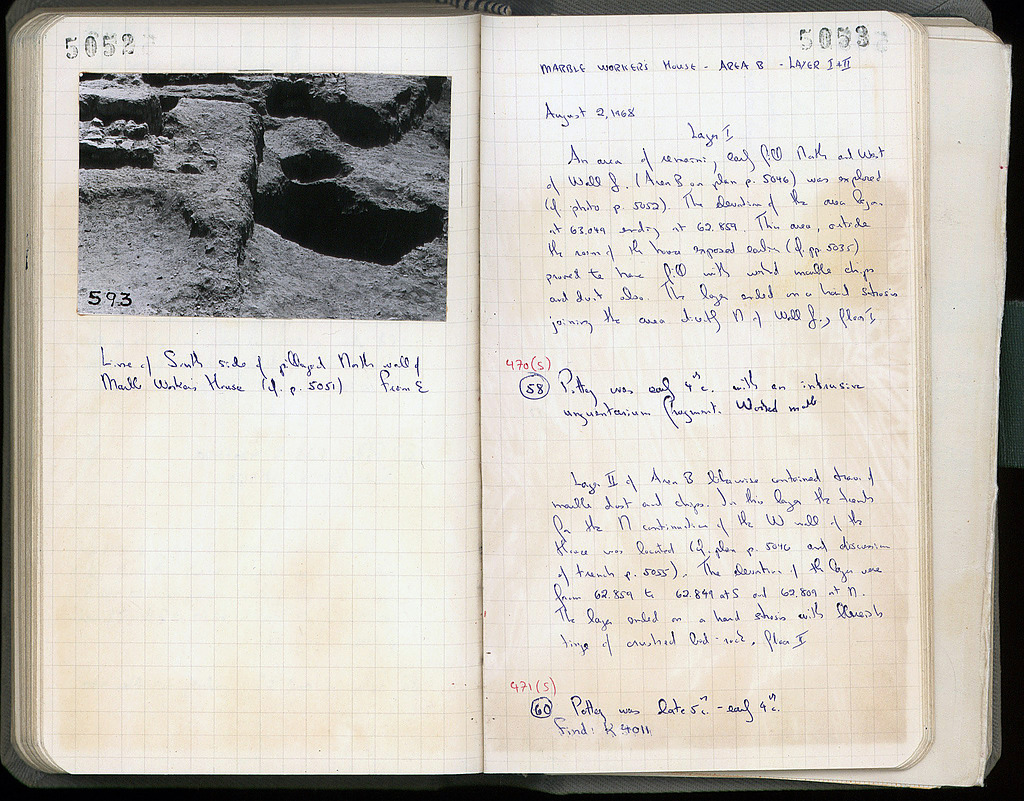 5052
593
Line of South side of pillaged North wall of
Marble Workers House (cf. p. 5051) From E
5053
MARBLE WORKERS HOUSE - AREA B - LAYER I+II
August 2, 1968
Layer I
An area of remaining early fill North and West
of Wall (Area B on plan p. 5046) was explored
(cf photo p. 5052). The elevation of the area began
at 63.049 ending at 62.859. This area, outside
the rooms of the house exposed earlier (cf. pp. 5035)
proved to have fill with worked marble chips
and dust also. The layer ended on a hard strosis
joining the area directly N of Wall floor I
470 (S)
58 Pottery was early 4th c. with an intrusive
unguentarium fragment. Worked marble
Layer II of Area B likewise contained traces of
marble dust and chips. In this layer the trench
for the N continuation of the W wall of the
House was located (cf. plan p. 5046 and discussion
of trench p. 5055). The elevations of the layer were
from 62.859 to 62.849 at S and 62.809 at N.
The layer ended on a hard strosis with blueish
tinge of crushed bed-rock, floor II
471 (S)
60 Pottery was late 5th c. - early 4th c.
Find: K 4011